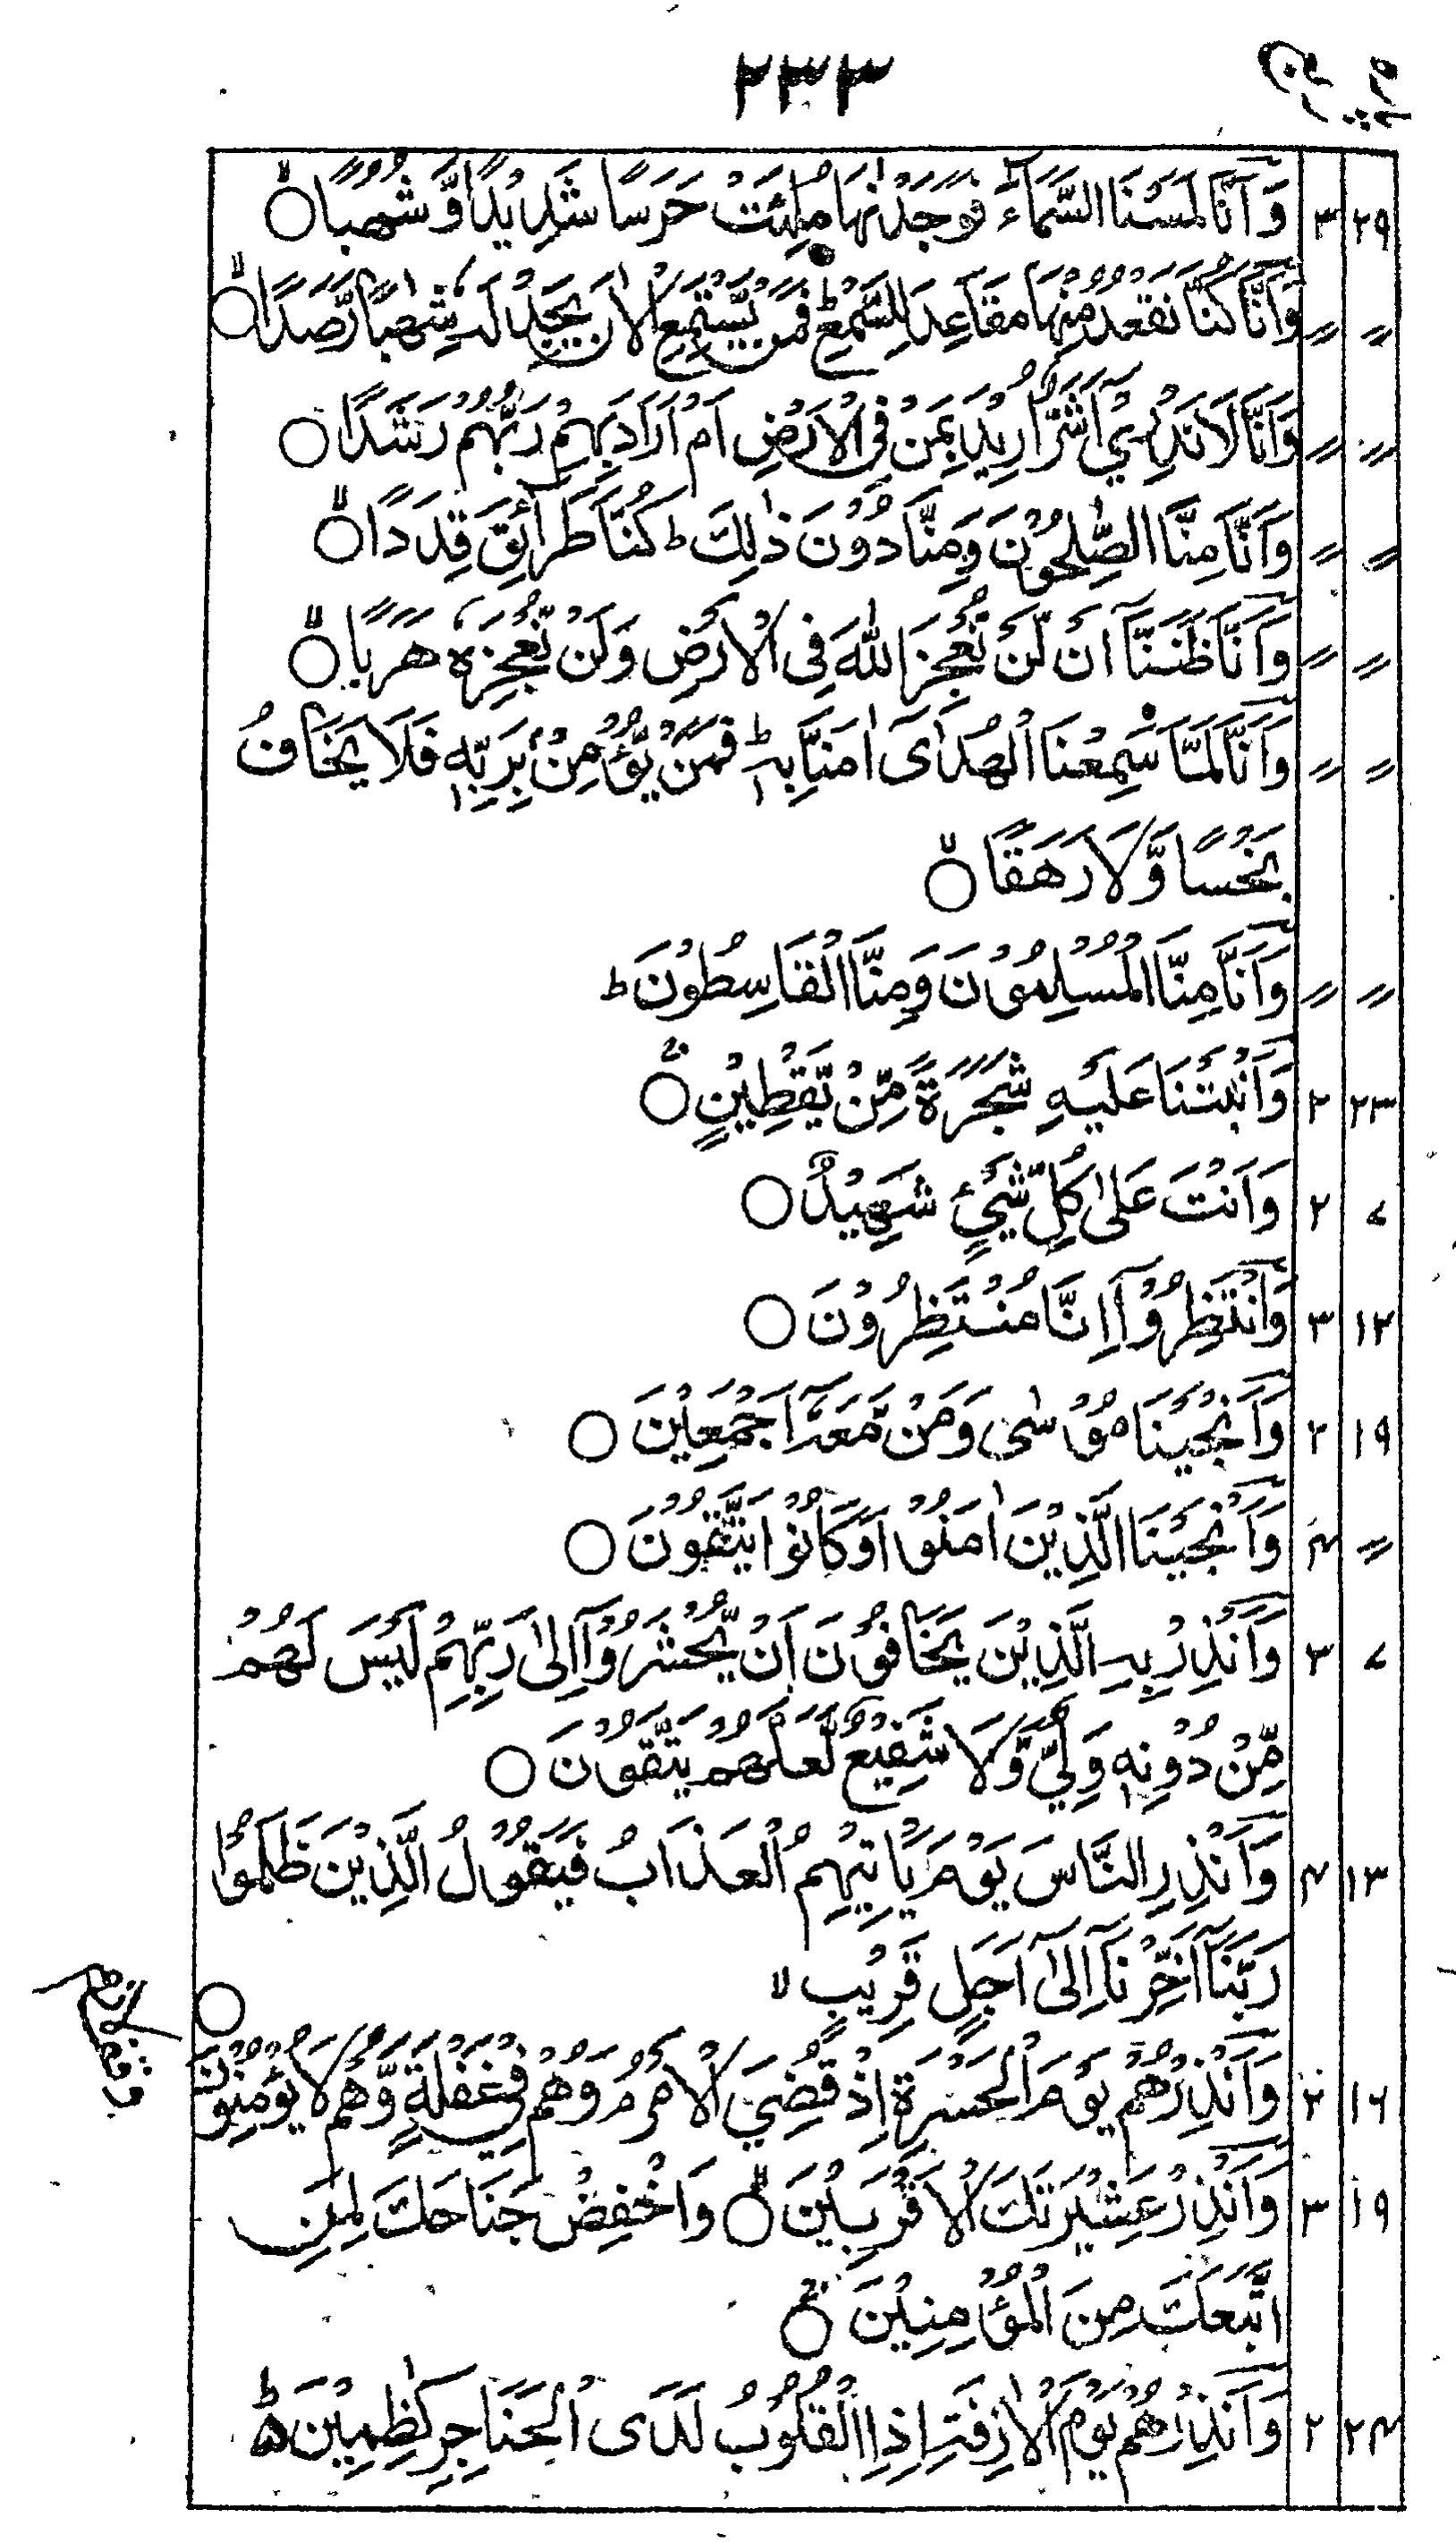 ۲۳۳
۲۹ ۳ وَّاَنَّا لَمَسْنَا السَّمَآءَ فَوَجَدْنٰهَا مُلِئَتْ حَرَسًا شَدِیْدًا وَّشُهُبًا ۙ○
〃 〃 وَّاَنَّا كُنَّا نَقْعُدُ مِنْهَا مَقَاعِدَ لِلسَّمْعِ ؕ فَمَنْ یَّسْتَمِعِ الْاٰنَ یَجِدْ لَهٗ شِهَابًا رَّصَدًا ۙ○
〃 〃 وَّاَنَّا لَا نَدْرِیْۤ اَشَرٌّ اُرِیْدَ بِمَنْ فِی الْاَرْضِ اَمْ اَرَادَ بِهِمْ رَبُّهُمْ رَشَدًا ○
〃 〃 وَّاَنَّا مِنَّا الصّٰلِحُوْنَ وَمِنَّا دُوْنَ ذٰلِكَ ؕ كُنَّا طَرَآئِقَ قِدَدًا ۙ○
〃 〃 وَّاَنَّا ظَنَنَّاۤ اَنْ لَّنْ نُّعْجِزَ اللّٰهَ فِی الْاَرْضِ وَلَنْ نُّعْجِزَهٗ هَرَبًا ۙ○
〃 〃 وَّاَنَّا لَمَّا سَمِعْنَا الْهُدٰۤی اٰمَنَّا بِهٖ ؕ فَمَنْ یُّؤْمِنْۢ بِرَبِّهٖ فَلَا یَخَافُ
بَخْسًا وَّلَا رَهَقًا ۙ○
〃 〃 وَّاَنَّا مِنَّا الْمُسْلِمُوْنَ وَمِنَّا الْقَاسِطُوْنَ ؕ
۲۳ ۲ وَاَنْۢبَتْنَا عَلَیْهِ شَجَرَةً مِّنْ یَّقْطِیْنٍ ۚ○
۷ ۲ وَاَنْتَ عَلٰی كُلِّ شَیْءٍ شَهِیْدٌ ○
۱۲ ۳ وَانْتَظِرُوْا اِنَّا مُنْتَظِرُوْنَ ○
۱۹ ۲ وَاَنْجَیْنَا مُوْسٰی وَمَنْ مَّعَهٗۤ اَجْمَعِیْنَ ○
〃 ۴ وَاَنْجَیْنَا الَّذِیْنَ اٰمَنُوْا وَكَانُوْا یَتَّقُوْنَ ○
۷ ۳ وَاَنْذِرْ بِهِ الَّذِیْنَ یَخَافُوْنَ اَنْ یُّحْشَرُوْۤا اِلٰی رَبِّهِمْ لَیْسَ لَهُمْ
مِّنْ دُوْنِهٖ وَلِیٌّ وَّلَا شَفِیْعٌ لَّعَلَّهُمْ یَتَّقُوْنَ ○
۱۳ ۴ وَاَنْذِرِ النَّاسَ یَوْمَ یَاْتِیْهِمُ الْعَذَابُ فَیَقُوْلُ الَّذِیْنَ ظَلَمُوْا
رَبَّنَاۤ اَخِّرْنَاۤ اِلٰۤی اَجَلٍ قَرِیْبٍ ۙ
۱۶ ۲ وَاَنْذِرْهُمْ یَوْمَ الْحَسْرَةِ اِذْ قُضِیَ الْاَمْرُ ۘ وَهُمْ فِیْ غَفْلَةٍ وَّهُمْ لَا یُؤْمِنُوْنَ ○
۱۹ ۳ وَاَنْذِرْ عَشِیْرَتَكَ الْاَقْرَبِیْنَ ۙ○ وَاخْفِضْ جَنَاحَكَ لِمَنِ
اتَّبَعَكَ مِنَ الْمُؤْمِنِیْنَ ۚ○
۲۴ ۲ وَاَنْذِرْهُمْ یَوْمَ الْاٰزِفَةِ اِذِ الْقُلُوْبُ لَدَی الْحَنَاجِرِ كٰظِمِیْنَ ؕ۵